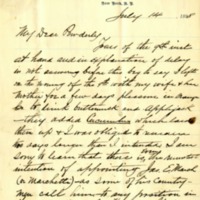 New York, N. Y.
July 14 188
My Dear Powderly
Yours of the 9th inst
at hand and in explanation of delay
in not answering before this beg to say I left
on the evening of the 9th with my wife & her
Mother for a four days pleasure in
to drink Buttermilk and Applejack
They added Cucumbers which laid
them up & I was obliged to remain
two days longer than I intended. I am
sorry to learn that there is
intention of appointing Jas
(or Marchetti) was some of his Country-
men call him to any position in